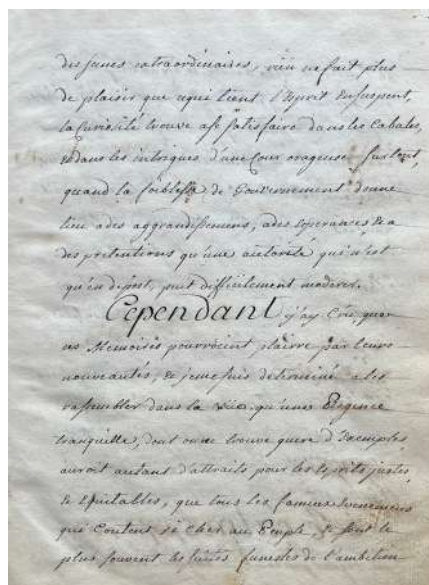 des scenes extraordinaires, rien ne fait plus
de plaisir que ce qui tient l'Esprit En suspent,
la Curiosité trouve ase satisfaire dans les Cabales,
& dans les intrigues d'une Cour orageuse surtout,
quand la foiblesse de Gouvernement donne
lieu ades aggrandissemens, ades Esperances & a
des pretentions qu'une autorité qui n'est
qu'en depost, peut difficilement moderer.
Cependant j'ay Crû que
ces Memoires pourroient plairre par leurs
nouveautés, & je me suis determiné a les
rassembler dans la qu'une Regence
tranquille, dont on ne trouve guere d'Exemples,
auroit autant d'attraits pour les Esprits justes,
& Equitables, que tous les fameux Evenemens
qui Coutent si cher au Peuple, & sont le
plus souvent les suites funestes de l'ambition